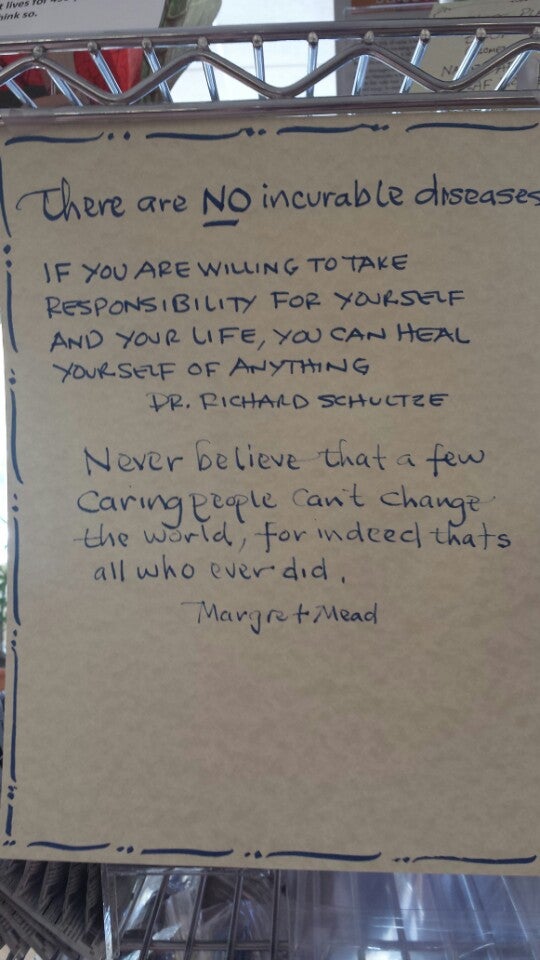 t lives for
hink so.
There are NO incurable diseases
IF YOU ARE WILLING TO TAKE
RESPONSIBILITY FOR YOURSELF
AND YOUR LIFE, YOU CAN HEAL
YOURSELF OF ANYTHING
DR. RICHARD SCHULTZE
Never believe that a few
caring people can't change
the world, for indeed thats
all who ever did.
Margret Mead